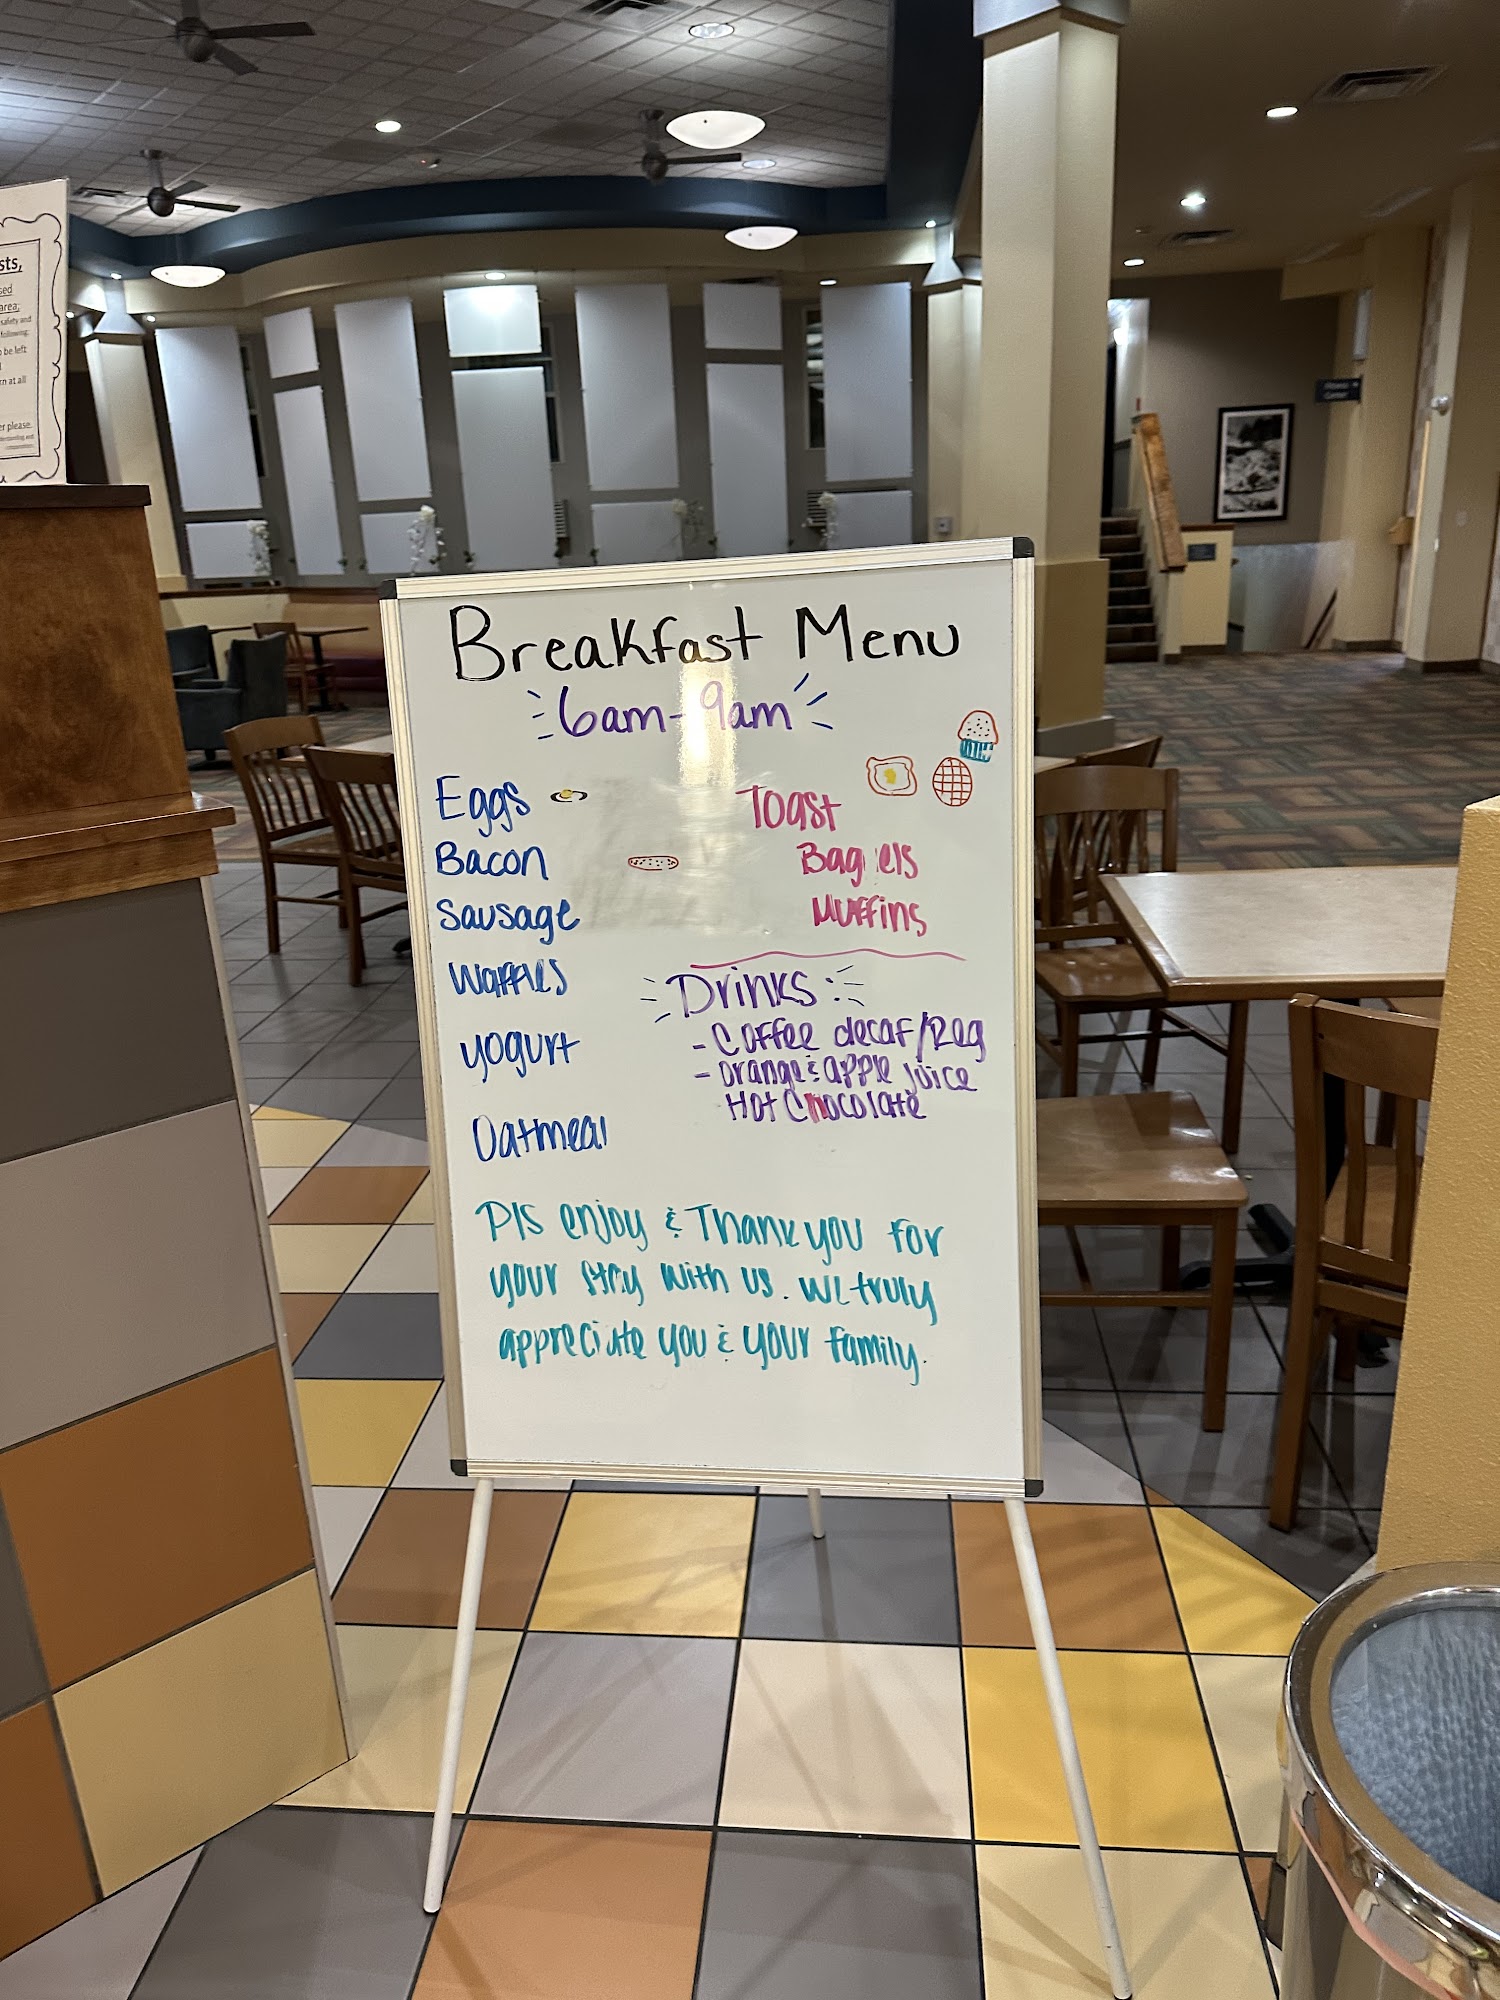 sts,
sed
area;
safety and
following:
be left
rn at all
er please.
Breakfast Menu
6am-9am
Eggs
Bacon
Sausage
Waffles
yogurt
Oatmeal
Toast
Bagels
Muffins
Drinks:
- Coffee decaf/Reg
- orange & apple juice
Hot Chocolate
Pls enjoy & Thank you for
your stay with us. We truly
appreciate you & your family.
Fitness
Center